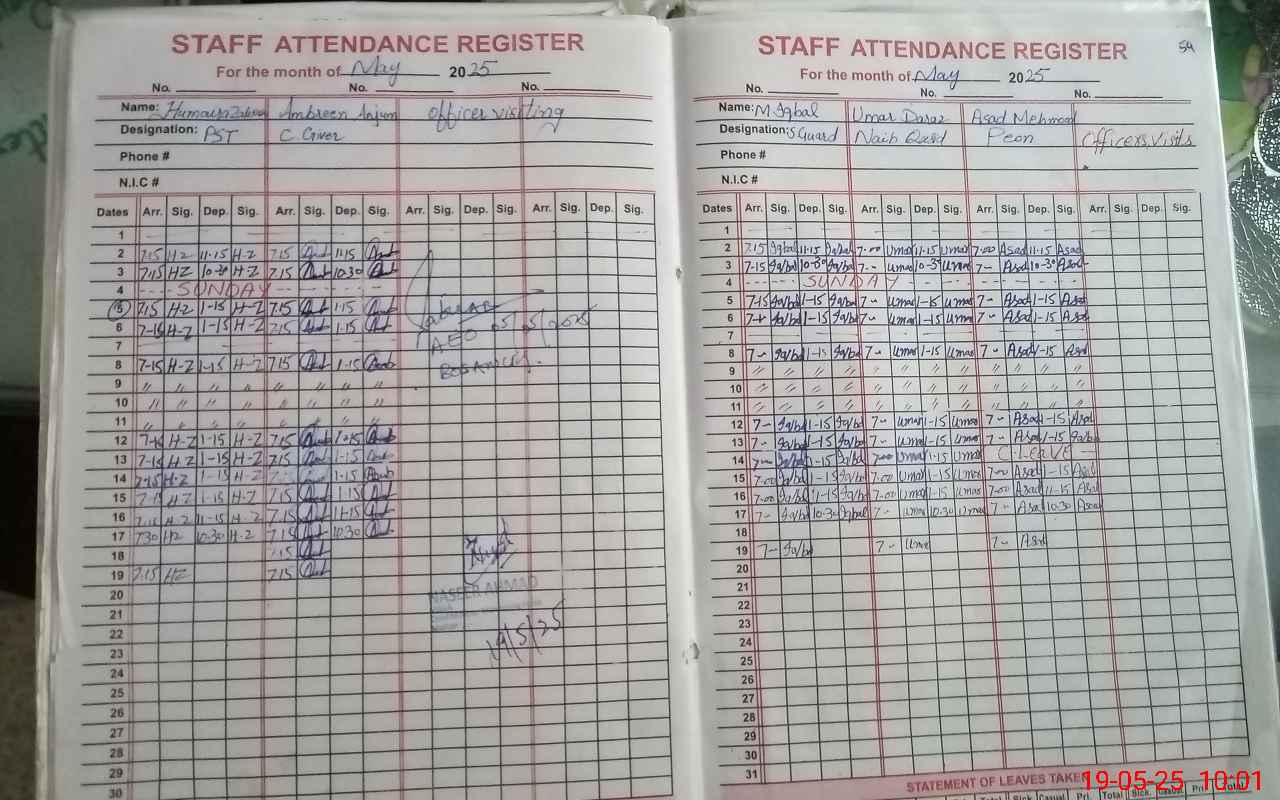 STAFF ATTENDANCE REGISTER
For the month of May 2025
No. No. No.
Name: Humaira Ambreen Anjum officer visiting
Designation: PST C Giver
Phone #
N.I.C #
Dates Arr. Sig. Dep. Sig. Arr. Sig. Dep. Sig. Arr. Sig. Dep. Sig. Arr. Sig. Dep. Sig.
1
2 7.15 H-Z 11-15 H-Z 7.15 11.15
3 7.15 HZ 10-30 H-Z 7.15 10.30
4 SUNDAY
5 7.15 H-Z 1-15 H-Z 7.15 1-15
6 7-15 H-Z 1-15 H-Z 7.15 1-15
AEO 05/05/2025
7
8 7-15 H-Z 1-15 H-Z 7.15 1-15
9 " " " " " " " "
10 " " " " " " " "
11 " " " "
12 7-15 H-Z 1-15 H-Z 7.15 1-15
13 7-15 H-Z 1-15 H-Z 7.15 1-15
14 7-15 H-Z 1-15 H-Z 1-15
15 7-15 H-Z 1-15 H-Z 7.15 1-15
16 7.15 H-Z 11-15 H-Z 7.15 11-15
17 7.30 HZ 10.30 H-Z 7.15 10.30
18 7.15
19 7.15 HZ 7.15
20
NASEER AHMAD
21
22
19/5/25
23
24
25
26
27
28
29
30
STAFF ATTENDANCE REGISTER 54
For the month of May 2025
No. No. No.
Name: M. Iqbal Umar Daraz Asad Mehmood
Designation: S Guard Naib Qasd Peon Officers, visits
Phone #
N.I.C #
Dates Arr. Sig. Dep. Sig. Arr. Sig. Dep. Sig. Arr. Sig. Dep. Sig. Arr. Sig. Dep. Sig.
1
2 7.15 Iqbal 11-15 Iqbal 7-00 Umar 11-15 Umar 7-00 Asad 11-15 Asad
3 7-15 Iqbal 10-30 Iqbal 7- Umar 10-30 Umar 7- Asad 10-30 Asad
4 SUNDAY
5 7-15 Iqbal 1-15 Iqbal 7- Umar 1-15 Umar 7- Asad 1-15 Asad
6 Iqbal 1-15 Iqbal 7- Umar 1-15 Umar 7- Asad 1-15 Asad
7
8 7- Iqbal 1-15 Iqbal 7- Umar 1-15 Umar 7- Asad 1-15 Asad
9 " " " " " " " " " " " "
10 " " " " " " " " " " " "
11 " " " " " " " " " " " "
12 7- Iqbal 1-15 Iqbal 7- Umar 1-15 Umar 7- Asad 1-15 Asad
13 7- Iqbal 1-15 Iqbal 7- Umar 1-15 Umar 7- Asad 1-15 Iqbal
14 7- Iqbal 1-15 Iqbal 7-00 Umar 1-15 Umar C. LEAVE
15 7-00 Iqbal 1-15 Iqbal 7-00 Umar 1-15 Umar 7-00 Asad 1-15 Asad
16 7-00 Iqbal 11-15 Iqbal 7-00 Umar 11-15 Umar 7-00 Asad 11-15 Asad
17 7- Iqbal 10-30 Iqbal 7- Umar 10.30 Umar 7- Asad 10.30 Asad
18
19 7- Iqbal 7- Umar 7- Asad
20
21
22
23
24
25
26
27
28
29
30
31
STATEMENT OF LEAVES TAKEN
Total Sick Casual Pri. Total Sick. Casual Pri. Total
19-05-25 10:01